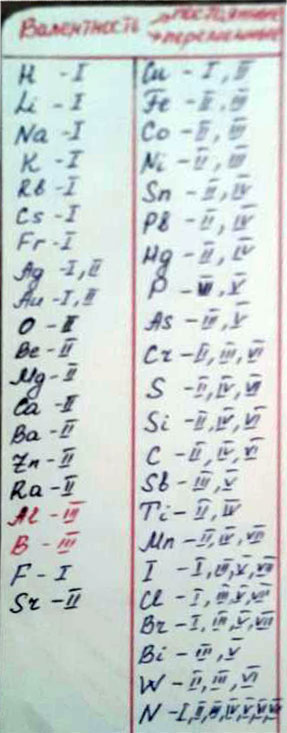 Валентность → постоянные
→ переменные
H - I
Li - I
Na - I
K - I
Rb - I
Cs - I
Fr - I
Ag - I, II
Au - I, II
O - II
Be - II
Mg - II
Ca - II
Ba - II
Zn - II
Ra - II
Al - III
B - III
F - I
Sr - II
Cu - I, II
Fe - II, III
Co - II, III
Ni - II, III
Sn - II, IV
Pb - II, IV
Hg - II, IV
P - III, V
As - III, V
Cr - II, III, VI
S - II, IV, VI
Si - II, IV, VI
C - II, IV, VI
Sb - III, V
Ti - II, IV
Mn - II, IV, VII
I - I, III, V, VII
Cl - I, III, V, VII
Br - I, III, V, VII
Bi - III, V
W - II, III, VI
N - I, II, III, IV, V, VI, VII